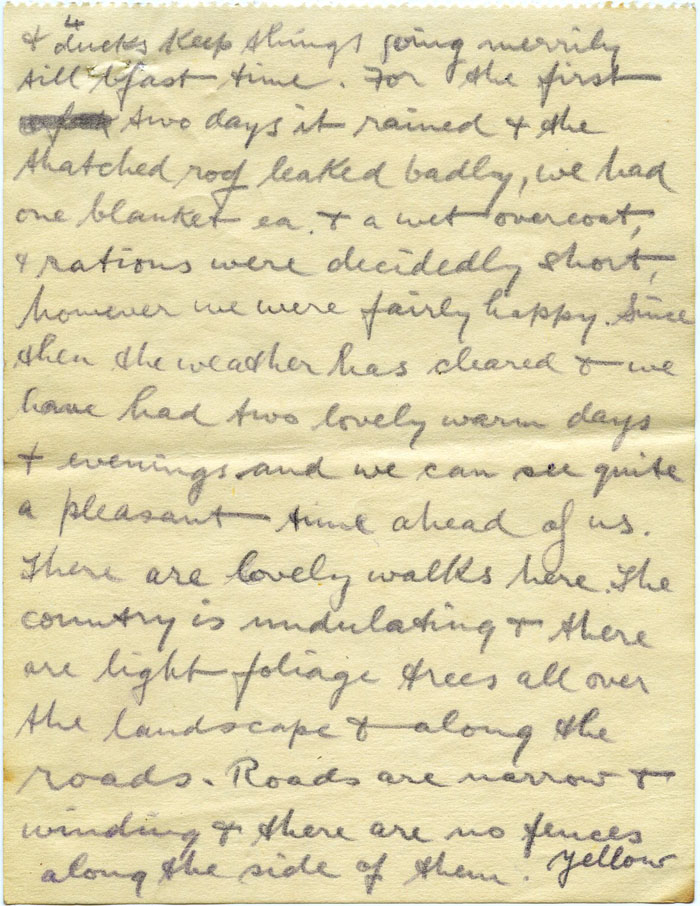 4
& ducks keep things going merrily
till b'fast time. For the first
two days it rained & the
thatched roof leaked badly, we had
one blanket ea. & a wet overcoat,
& rations were decidedly short,
however we were fairly happy. Since
then the weather has cleared & we
have had two lovely warm days
& evenings and we can see quite
a pleasant time ahead of us.
There are lovely walks here. The
country is undulating & there
are light foliage trees all over
the landscape & along the
roads. Roads are narrow &
winding & there are no fences
along the side of them. Yellow